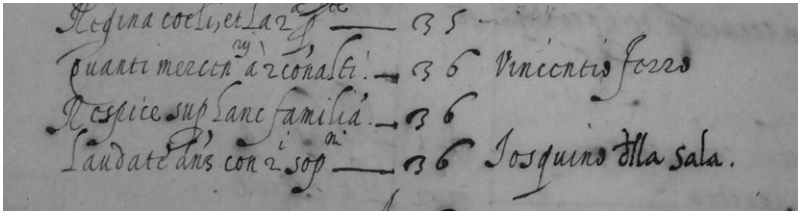 Regina coeli, et la 2ª pte — 35
Quanti mercenarij à 2 con alti. — 36 Vincentio Ferro
Respice sup hanc familiā. — 36
Laudate dns con 2i sopni — 36 Josquino dlla sala.